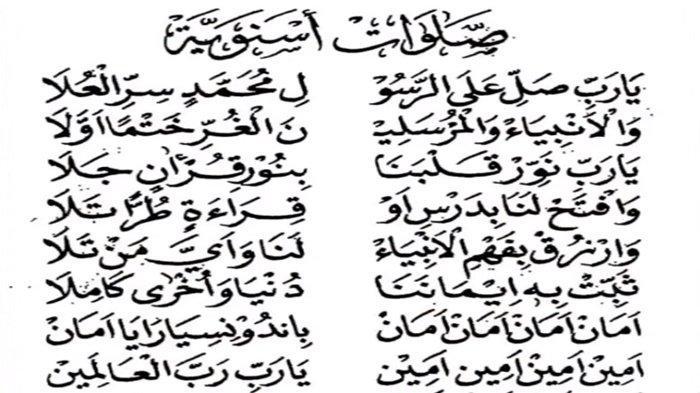 صَلَوَاتْ أَسْنَوِيَّة
يَارَبِّ صَلِّ عَلَى الرَّسُوْ لِ مُحَمَّدٍ سِرِّ الْعُلَا
وَالْأَنْبِيَاءْ وَالْمُرْسَلِيْـ نَ الْغُرِّ خَتْمًا أَوَّلَا
يَارَبِّ نَوِّرْ قَلْبَنَا بِنُوْرِ قُرْأٰنٍ جَلَا
وَافْتَحْ لَنَا بِدَرْسٍ اَوْ قِرَاءَةٍ طُرًّا تَلَا
وَارْزُقْ بِفَهْمِ الْاَنْبِيَاءْ لَنَا وَاَيِّ مَنْ تَلَا
ثَبِّتْ بِهِ اِيْمَانَنَا دُنْيَا وَأُخْرَى كَامِلَا
اَمَانْ اَمَانْ اَمَانْ اَمَانْ بِانْدُوْنِيسِيَا رَايَا اَمَانْ
اَمِيْن اَمِيْن اَمِيْن اَمِيْن يَارَبِّ رَبَّ الْعَالَمِيْن